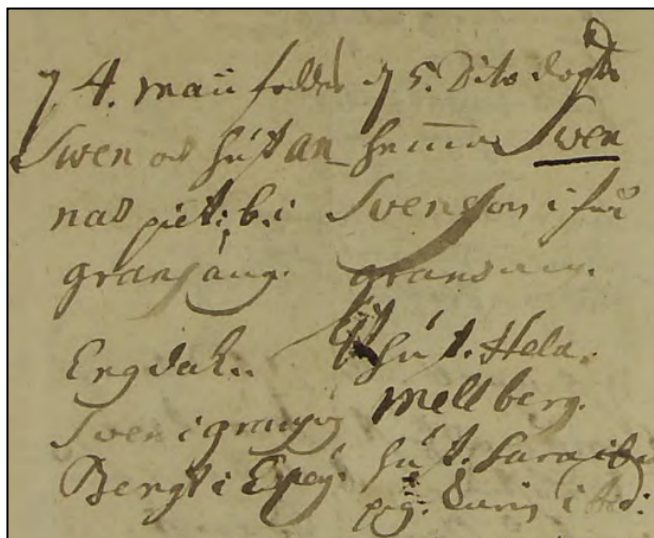 d 4. maii föddes d 5. Dito döptes
Swen och hust an hemma Swen
nas piet: b. i Svensson i
gransäng. gransäng.
Engdahl. hust. Hela.
Sven i gransäng Mellberg.
Bengt i hust. Sara ibi
pig. Karin ibid: